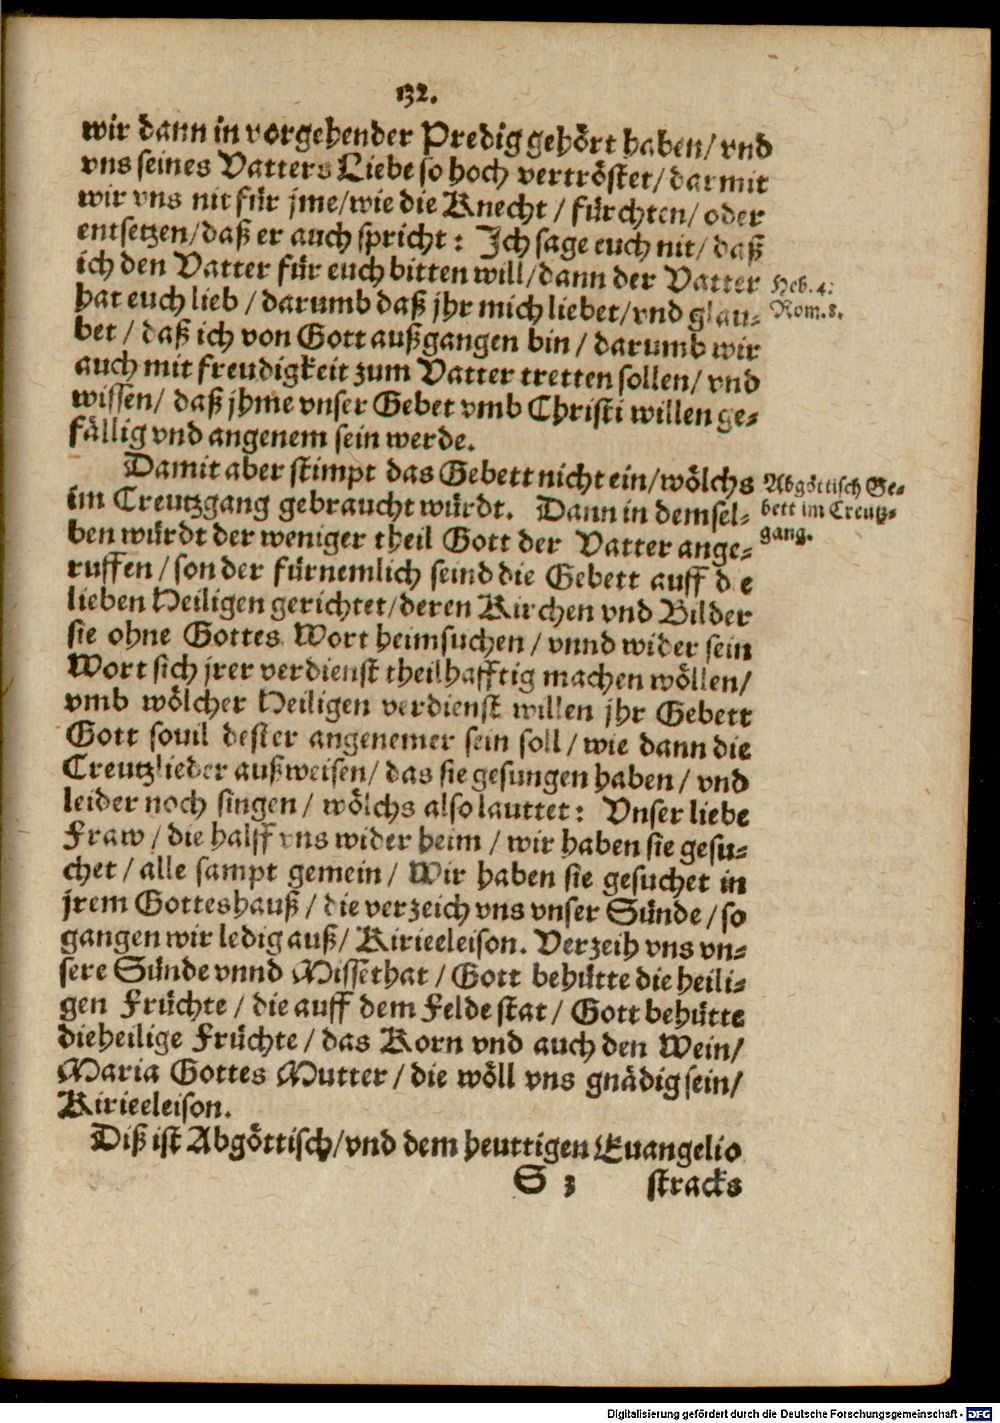 132.
wir dann in vorgehender Predig gehört haben/ vnd
vns seines Vatters Liebe so hoch vertröstet/ darmit
wir vns nit für jme/ wie die Knecht / fürchten/ oder
entsetzen/ daß er auch spricht: Ich sage euch nit/ daß
ich den Vatter für euch bitten will/ dann der Vatter
Heb. 4.
hat euch lieb / darumb daß jhr mich liebet/ vnd glau-
Rom. 8.
bet / daß ich von Gott außgangen bin / darumb wir
auch mit freudigkeit zum Vatter tretten sollen/ vnd
wissen/ daß jhme vnser Gebet vmb Christi willen ge-
fällig vnd angenem sein werde.
Damit aber stimpt das Gebett nicht ein/ wölchs
Abgöttisch Ge-
im Creutzgang gebraucht würdt. Dann in demsel-
bett im Creutz-
ben würdt der weniger theil Gott der Vatter ange-
gang.
ruffen / sonder fürnemlich seind die Gebett auff d e
lieben Heiligen gerichtet/ deren Kirchen vnd Bilder
sie ohne Gottes Wort heimsuchen / vnnd wider sein
Wort sich jrer verdienst theilhafftig machen wöllen/
vmb wölcher Heiligen verdienst willen jhr Gebett
Gott souil dester angenemer sein soll / wie dann die
Creutzlieder außweisen/ das sie gesungen haben / vnd
leider noch singen / wölchs also lauttet: Vnser liebe
Fraw / die halff vns wider heim / wir haben sie gesu-
chet / alle sampt gemein / Wir haben sie gesuchet in
jrem Gotteshauß / die verzeich vns vnser Sünde / so
gangen wir ledig auß/ Kirieeleison. Verzeih vns vn-
sere Sünde vnnd Missethat / Gott behütte die heili-
gen Früchte / die auff dem Felde stat / Gott behütte
die heilige Früchte / das Korn vnd auch den Wein/
Maria Gottes Mutter / die wöll vns gnädig sein/
Kirieeleison.
Diß ist Abgöttisch/ vnd dem heuttigen Euangelio
S 3 stracks
Digitalisierung gefördert durch die Deutsche Forschungsgemeinschaft - DFG